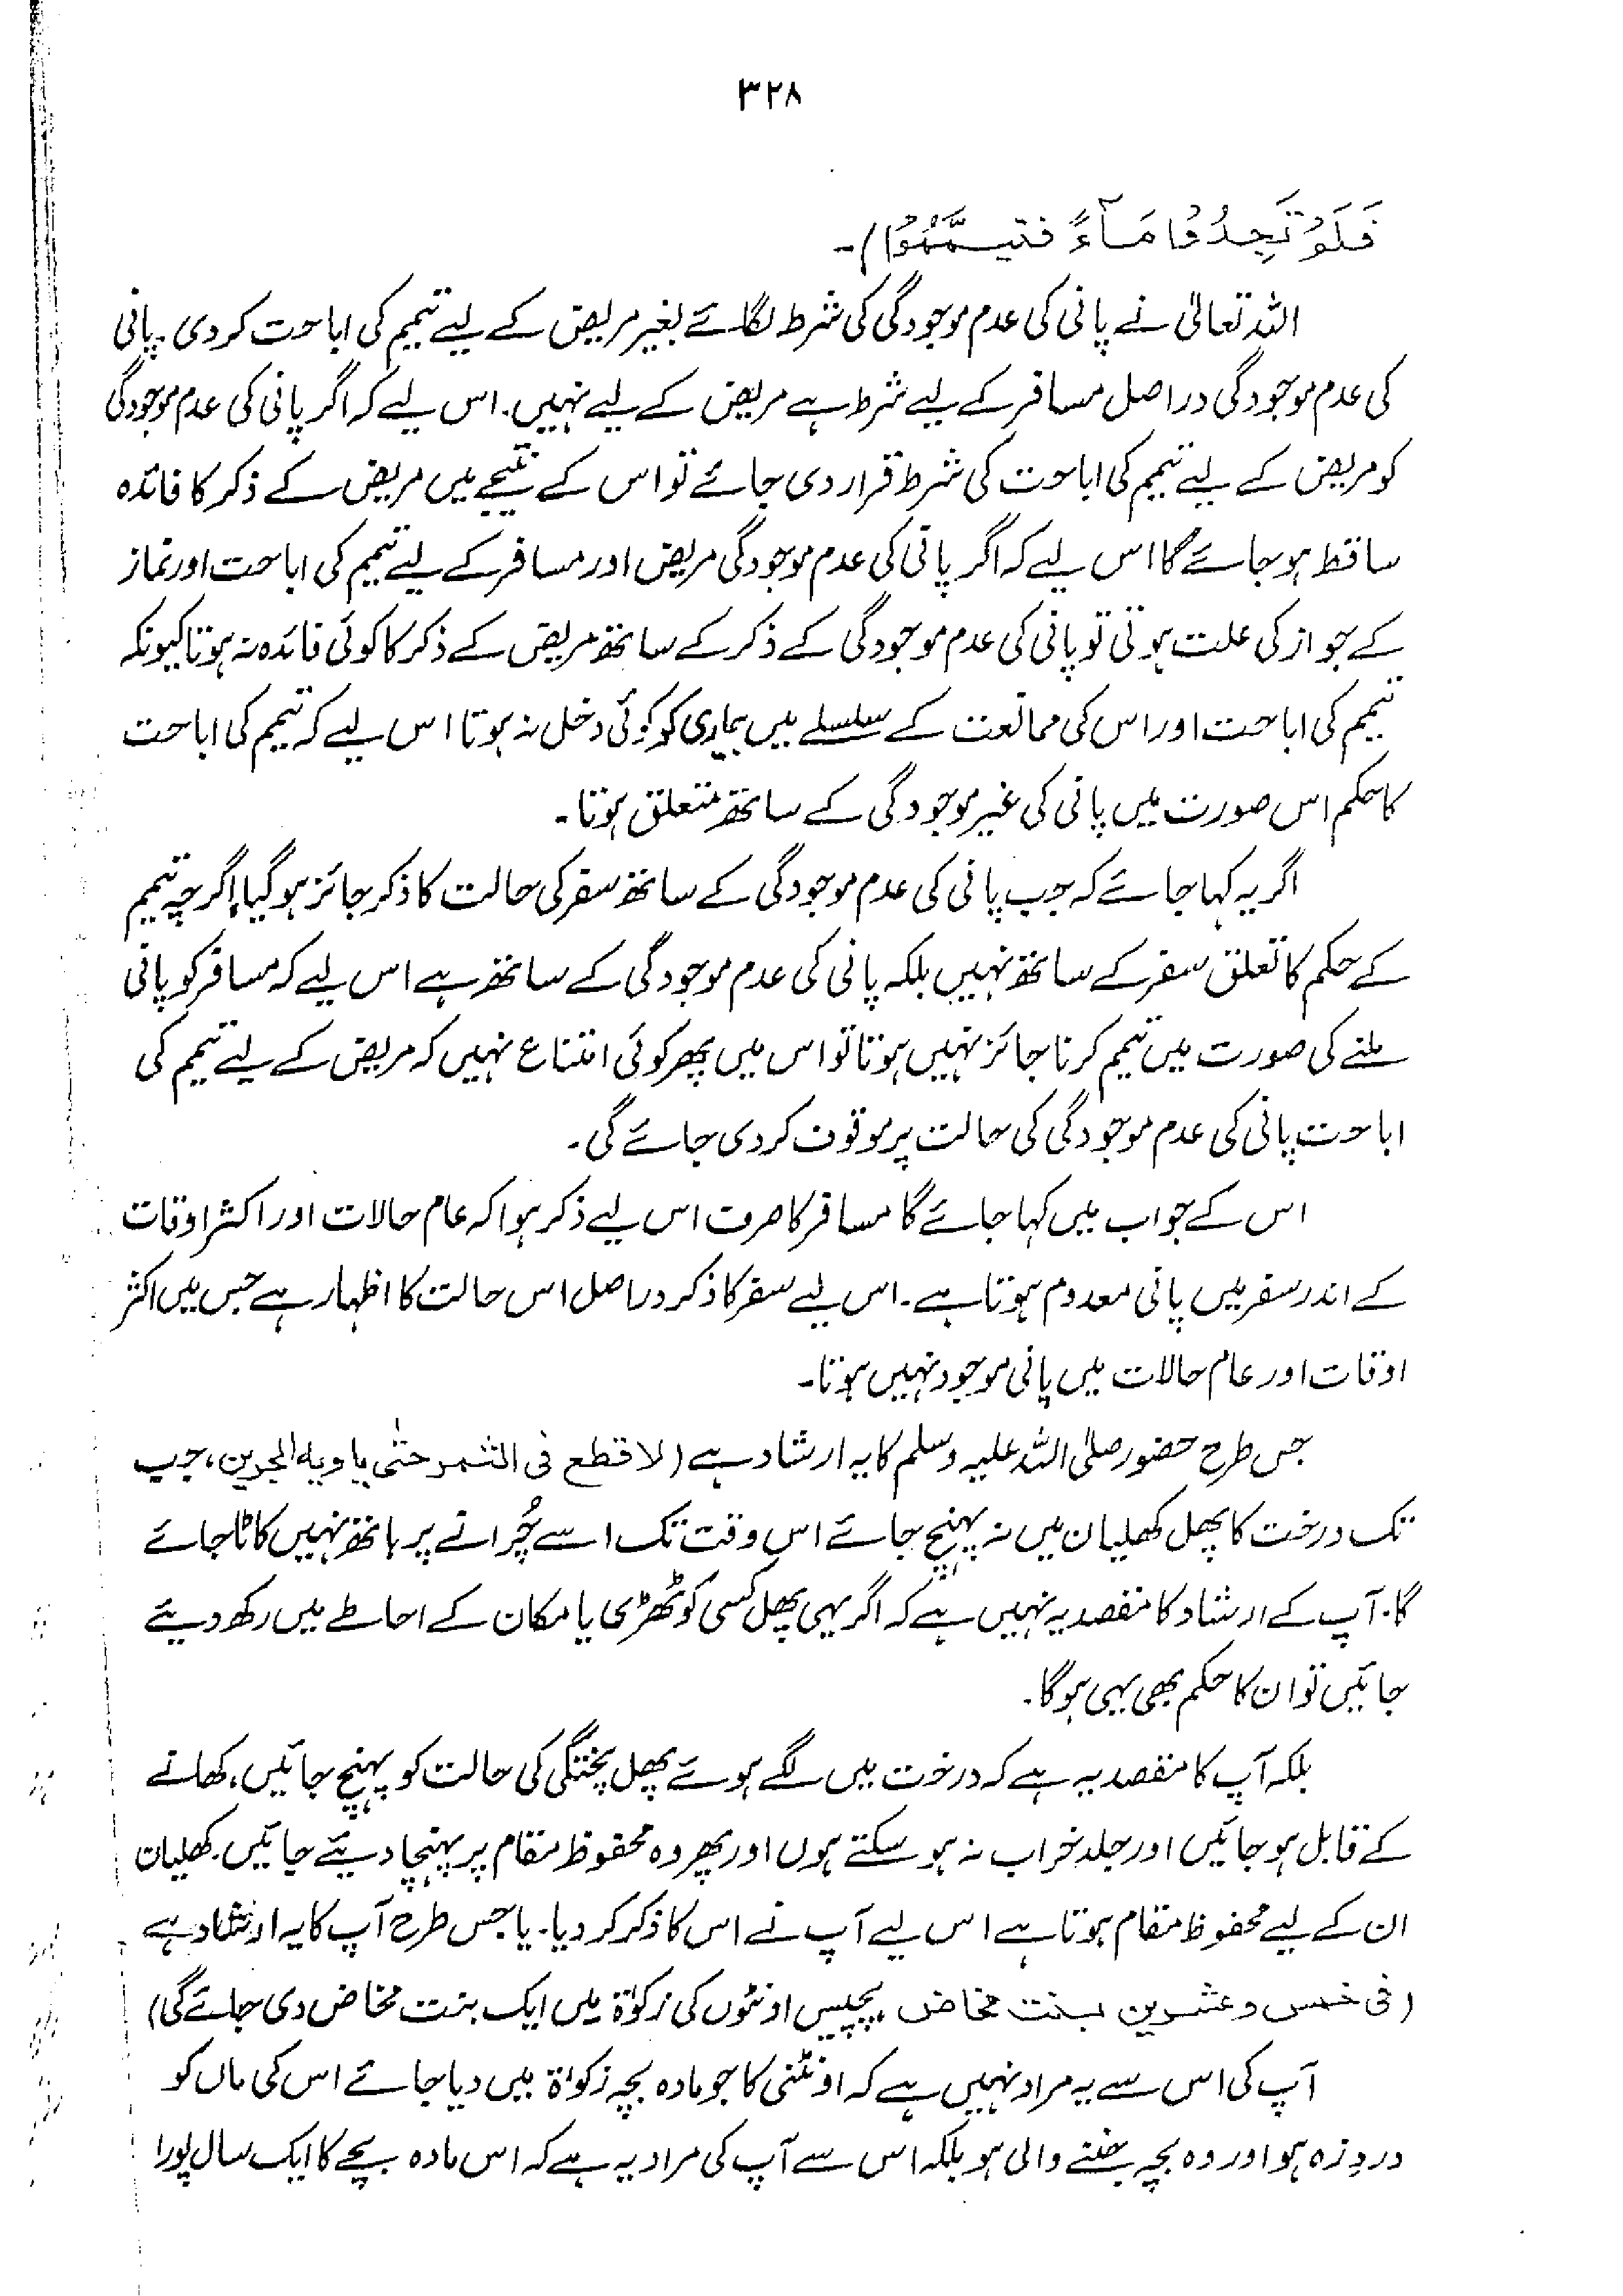 ۳۲۸
فَلَمْ تَجِدُوْا مَآءً فتیممّوْا)۔
اللہ تعالیٰ نے پانی کی عدم موجودگی کی شرط لگائے بغیر مریض کے لیے تیمم کی اباحت کر دی۔ پانی
کی عدم موجودگی دراصل مسافر کے لیے شرط ہے مریض کے لیے نہیں۔ اس لیے کہ اگر پانی کی عدم موجودگی
کو مریض کے لیے تیمم کی اباحت کی شرط قرار دی جائے تو اس کے نتیجے میں مریض کے ذکر کا فائدہ
ساقط ہو جائے گا اس لیے کہ اگر پانی کی عدم موجودگی مریض اور مسافر کے لیے تیمم کی اباحت اور نماز
کے جواز کی علت ہوتی تو پانی کی عدم موجودگی کے ذکر کے ساتھ مریض کے ذکر کا کوئی فائدہ نہ ہوتا کیونکہ
تیمم کی اباحت اور اس کی ممانعت کے سلسلے میں بیماری کو کوئی دخل نہ ہوتا اس لیے کہ تیمم کی اباحت
کا حکم اس صورت میں پانی کی غیر موجودگی کے ساتھ متعلق ہوتا۔
اگر یہ کہا جائے کہ جب پانی کی عدم موجودگی کے ساتھ سفر کی حالت کا ذکر جائز ہو گیا اگرچہ تیمم
کے حکم کا تعلق سفر کے ساتھ نہیں بلکہ پانی کی عدم موجودگی کے ساتھ ہے اس لیے کہ مسافر کو پانی
ملنے کی صورت میں تیمم کرنا جائز نہیں ہوتا تو اس میں پھر کوئی امتناع نہیں کہ مریض کے لیے تیمم کی
اباحت پانی کی عدم موجودگی کی حالت پر موقوف کر دی جائے گی۔
اس کے جواب میں کہا جائے گا مسافر کا صرف اس لیے ذکر ہوا کہ عام حالات اور اکثر اوقات
کے اندر سفر میں پانی معدوم ہوتا ہے۔ اس لیے سفر کا ذکر دراصل اس حالت کا اظہار ہے جس میں اکثر
اوقات اور عام حالات میں پانی موجود نہیں ہوتا۔
جس طرح حضور صلی اللہ علیہ وسلم کا یہ ارشاد ہے (لا قطع فی الثمر حتٰی یاویه الجرین، جب
تک درخت کا پھل کھلیان میں نہ پہنچ جائے اس وقت تک اسے چُرانے پر ہاتھ نہیں کاٹا جائے
گا۔ آپ کے ارشاد کا مقصد یہ نہیں ہے کہ اگر یہی پھل کسی کوٹھڑی یا مکان کے احاطے میں رکھ دیئے
جائیں تو ان کا حکم بھی یہی ہوگا۔
بلکہ آپ کا مقصد یہ ہے کہ درخت میں لگے ہوئے پھل پختگی کی حالت کو پہنچ جائیں، کھانے
کے قابل ہو جائیں اور جلد خراب نہ ہو سکتے ہوں اور پھر وہ محفوظ مقام پر پہنچا دیئے جائیں۔ کھلیان
ان کے لیے محفوظ مقام ہوتا ہے اس لیے آپ نے اس کا ذکر کر دیا۔ یا جس طرح آپ کا یہ ارشاد ہے
(فی خمس وعشرین بنت مخاض پچیس اونٹوں کی زکوٰۃ میں ایک بنت مخاض دی جائے گی)
آپ کی اس سے یہ مراد نہیں ہے کہ اونٹنی کا جو مادہ بچہ زکوٰۃ میں دیا جائے اس کی ماں کو
دردِ زہ ہو اور وہ بچہ جننے والی ہو بلکہ اس سے آپ کی مراد یہ ہے کہ اس مادہ بچے کا ایک سال پورا